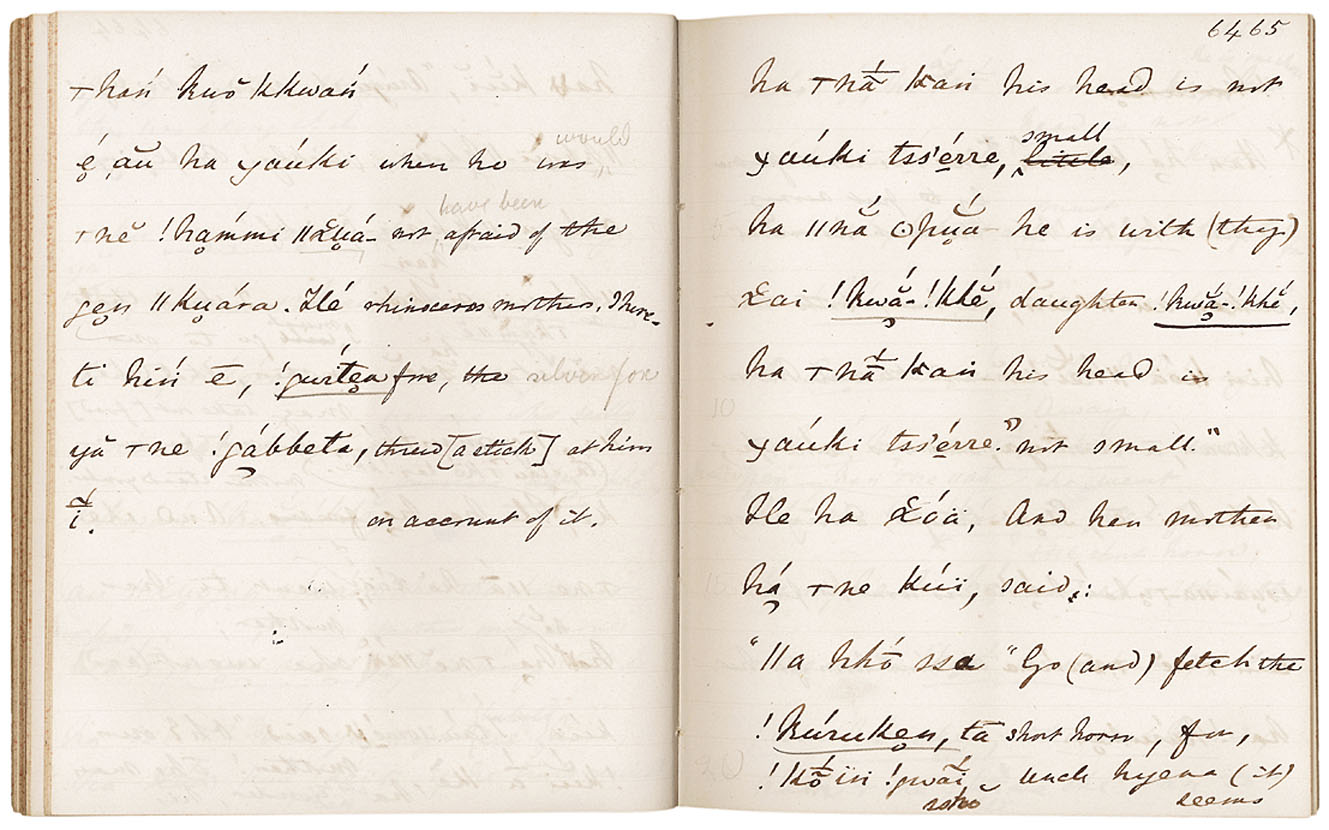 ⊤haṅ kuŏ kkwaṅ
é̥, ău ha yaúki when he was would
⊤nĕ !ha̭mmi ǁχṷá- not have been afraid of the
ge̥n ǁkṷára. Hé rhinoceros mother. There-
ti hiń ē, !gwíte̥n fore, the silver fox
yă ⊤ne !gábbeta, threw [a stick] at him
í. on account of it.
6465
ha ⊤nā́ kan his head is not
yaúki tss'érre, little small,
ha ǁnắ ʘpṷá he is with (thy)
χai !kwă̭-!khĕ́, daughter !kwă̭-!khĕ́,
ha ⊤nā́ kan his head is
yaúki tss'érre." not small."
He ha χóä, And her mother
há̭ ⊤ne kúï, said:
"ǁa khṓ ssa "Go (and) fetch the
!kúruke̥n, tā short horn, for,
!kṓïn !gwāí uncle hyena (it)
seems